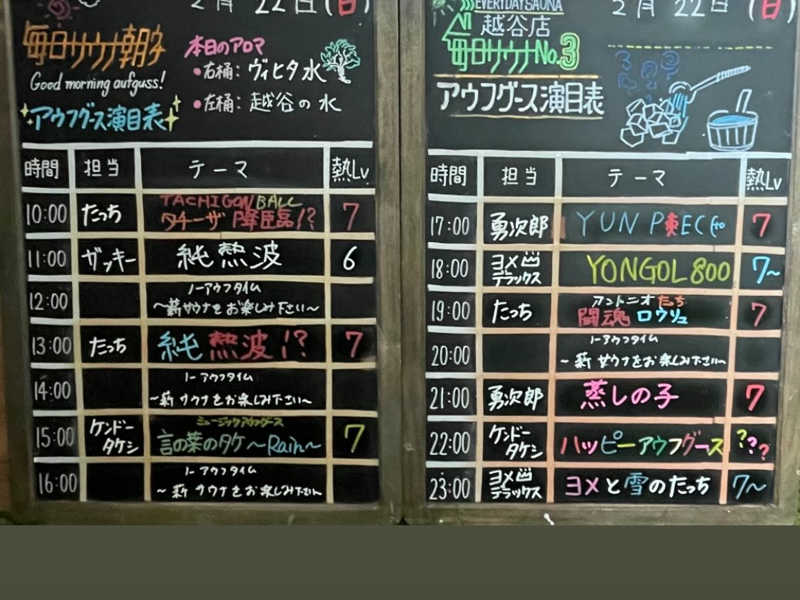 2月 22日(日)
毎日サウナ朝分
Good morning aufguss!
アウフグース演目表
本日のアロマ
・右桶: ヴィヒタ水
・左桶: 越谷の水
時間 担当 テーマ 熱Lv.
10:00 たっち TACHIGON BALL タチーザ 降臨臨!? 7
11:00 ガッキー 純熱波 6
12:00 ノーアウフタイム
〜薪サウナをお楽しみ下さい〜
13:00 たっち 純熱波!? 7
14:00 ノーアウフタイム
〜薪サウナをお楽しみ下さい〜
15:00 ケンドータケシ ミュージックアウフグース
言の葉のタケ〜Rain〜 7
16:00 ノーアウフタイム
〜薪サウナをお楽しみ下さい〜
EVERYDAY SAUNA
越谷店
毎日サウナNo.3
アウフグース演目表
2月 22日(日)
時間 担当 テーマ 熱Lv
17:00 勇次郎 YUN P東EC 7
18:00 ヨメ山デラックス YONGOL 800 7〜
19:00 たっち アントニオたち
闘魂 ロウリュ 7
20:00 ノーアウフタイム
〜薪サウナをお楽しみ下さい〜
21:00 勇次郎 蒸しの子 7
22:00 ケンドータケシ ハッピーアウフグース ???
23:00 ヨメ山デラックス ヨメと雪のたっち 7〜